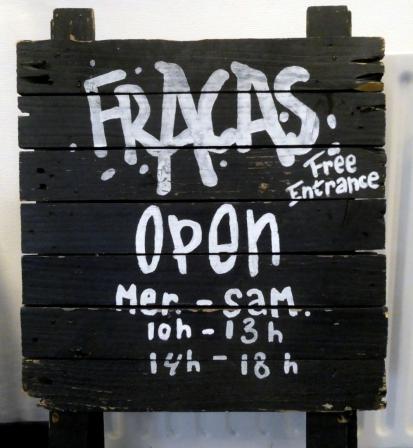 FRACAS
Free
Entrance
OPEN
Mer. - sam.
10h - 13h
14h - 18h